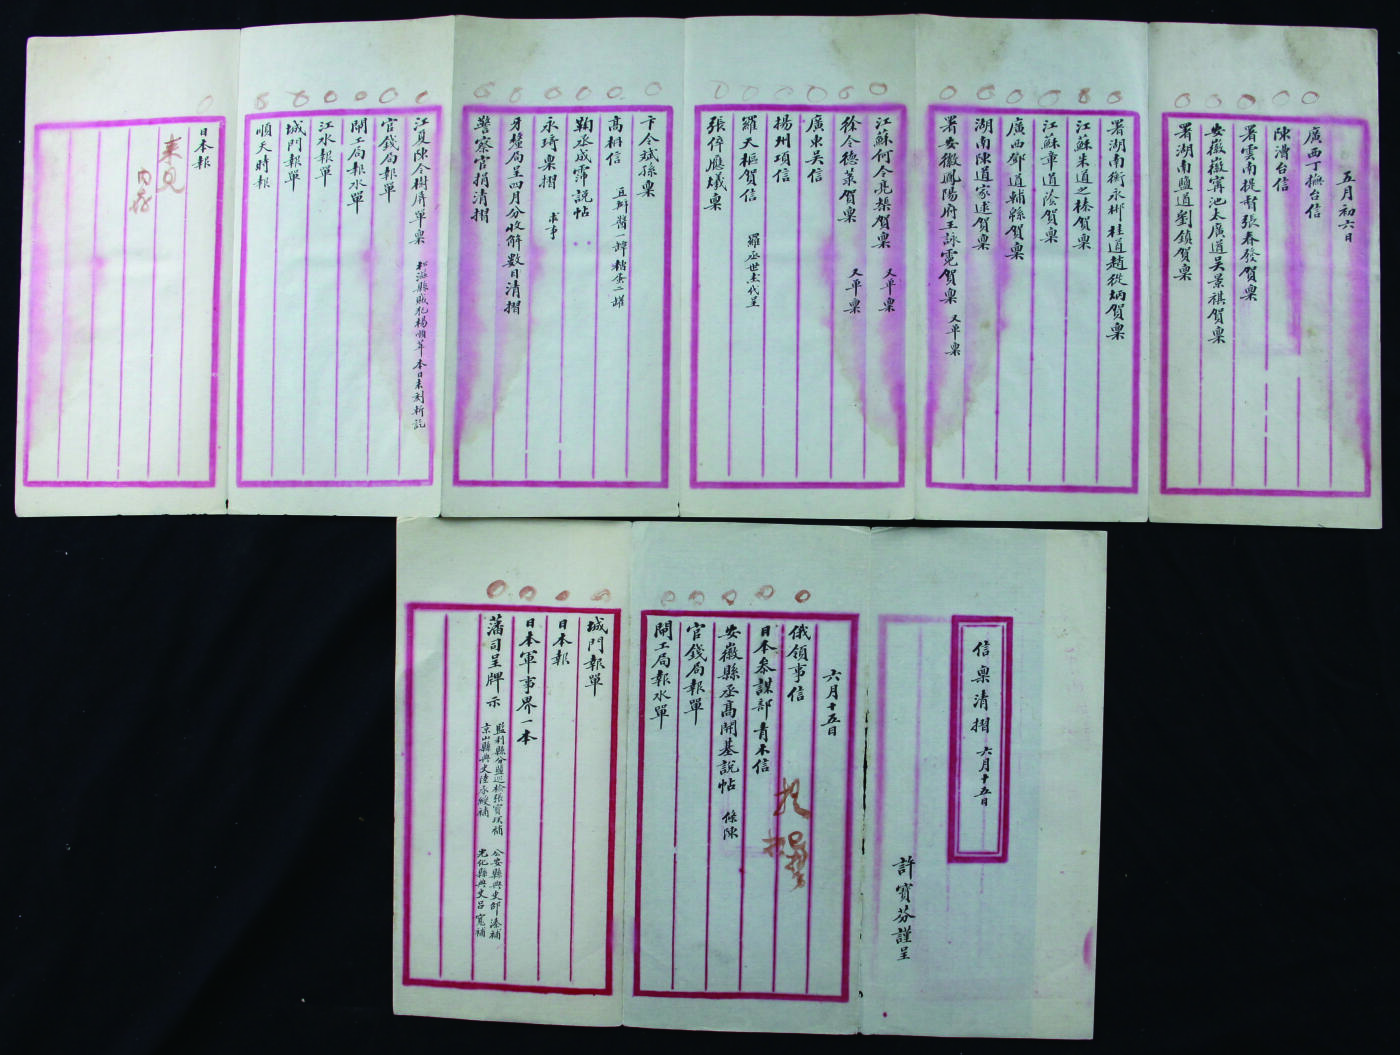 五月初六日
廣西丁撫台信
陳漕台信
署雲南提督張春發賀稟
安徽徽寧池太廣道吳景祺賀稟
署湖南鹽道劉鎮賀稟
署湖南衡永郴桂道趙從炳賀稟
江蘇朱道之榛賀稟
江蘇章道蔭賀稟
廣西鄧道輔縣賀稟
湖南陳道家逑賀稟
署安徽鳳陽府王詠霓賀稟 又單稟
江蘇何令亮榘賀稟 又單稟
徐令德棻賀稟 又單稟
廣東吳信
揚州項信
羅天樞賀信 羅丞世杰代呈
張倅應爔稟
卞令斌孫稟
高枬信 豆瓣醬一罈 糟蛋二罐
鞠丞成霈說帖
永琦稟摺 求事
牙釐局呈四月分收解數目清摺
警察官捐清摺
江夏陳令樹屏單稟 松滋縣賊犯楊順華本日未刻斬訖
官錢局報單
閘工局報水單
江水報單
城門報單
順天時報
日本報
來見
信稟清摺 六月十五日
許寶芬謹呈
六月十五日
俄領事信
日本參謀部青木信
安徽縣丞高開基說帖 條陳
官錢局報單
閘工局報水單
城門報單
日本報
日本軍事界一本
藩司呈牌示
監利縣分鹽巡檢張寶琪補
京山縣典史陸承綬補
公安縣典史邵湊補
光化縣典史呂寬補